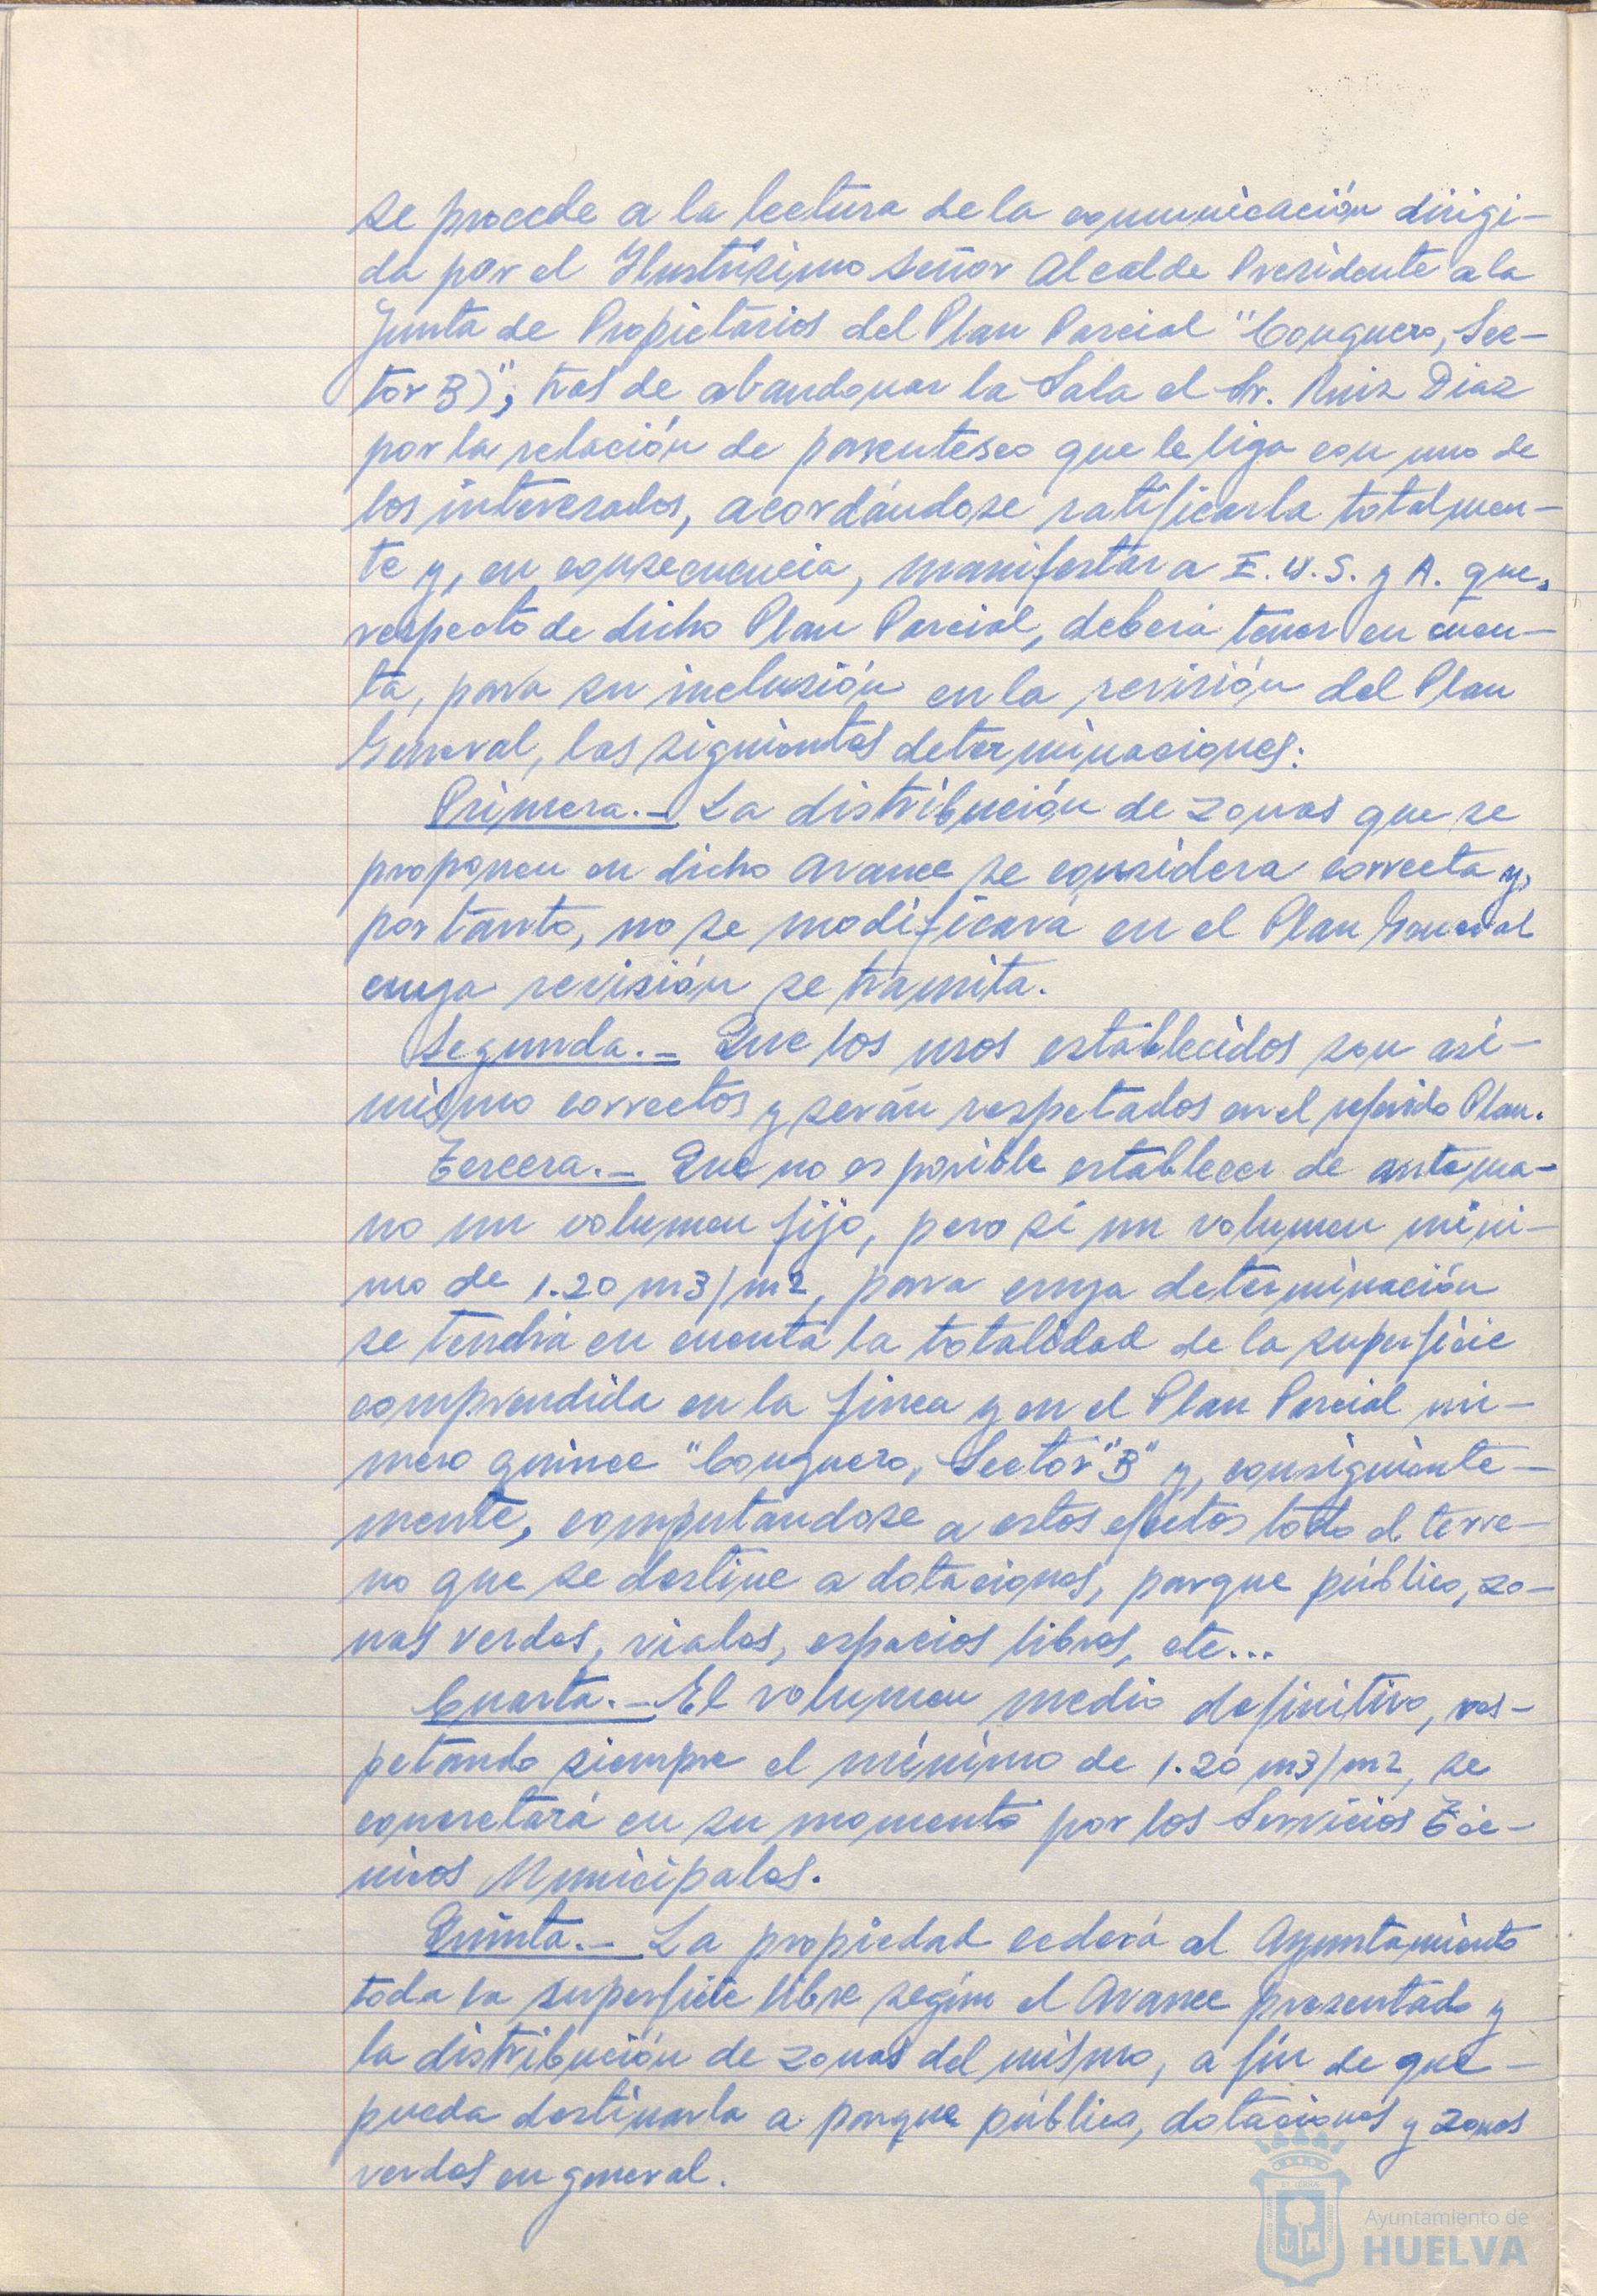 se procede a la lectura de la comunicación dirigi-
da por el Ilustrísimo Señor Alcalde Presidente a la
Junta de Propietarios del Plan Parcial "Conquero, Sec-
tor B)", tras de abandonar la Sala el Sr. Ruiz Diaz
por la relación de parentesco que le liga con uno de
los interesados, acordándose ratificarla totalmen-
te y, en consecuencia, manifestar a E.W.S. y A. que,
respecto de dicho Plan Parcial, deberá tener en cuen-
ta, para su inclusión en la revisión del Plan
General, las siguientes determinaciones:
Primera.- La distribución de zonas que se
proponen en dicho Avance se considera correcta y,
por tanto, no se modificará en el Plan General
cuya revisión se tramita.
Segunda.- Que los usos establecidos son asi-
mismo correctos y serán respetados en el referido Plan.
Tercera.- Que no es posible establecer de antema-
no un volumen fijo, pero sí un volumen míni-
mo de 1.20 m3/m2, para cuya determinación
se tendrá en cuenta la totalidad de la superficie
comprendida en la finca y en el Plan Parcial nú-
mero quince "Conquero, Sector "B" y, consiguiente-
mente, computandose a estos efectos todo el terre-
no que se destine a dotaciones, parque público, zo-
nas verdes, viales, espacios libres, etc...
Cuarta.- El volumen medio definitivo, res-
petando siempre el mínimo de 1.20 m3/m2, se
concretará en su momento por los Servicios Téc-
nicos Municipales.
Quinta.- La propiedad cederá al Ayuntamiento
toda la superficie libre según el Avance presentado y
la distribución de zonas del mismo, a fin de que
pueda destinarla a parque público, dotaciones y zonas
verdes en general.
Ayuntamiento de
HUELVA